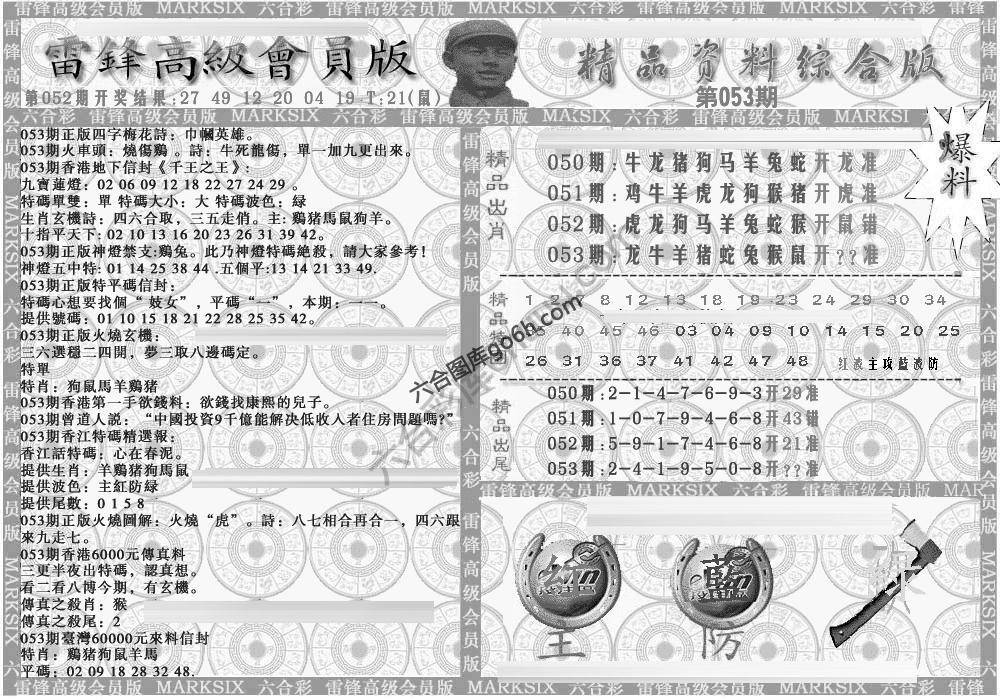 雷锋高级会员版 MARKSIX 六合彩 雷锋高级会员版 MARKSIX 六合彩 雷锋高级会员版 MARKSIX 六合彩
雷鋒高級會員版
精品资料综合版
第052期开奖结果:27 49 12 20 04 19-T:21(鼠)
第053期
爆料
053期正版四字梅花詩：巾幗英雄。
053期火車頭：燒傷鷄 。詩：牛死龍傷，單一加九更出來。
053期香港地下信封《千王之王》:
九寶蓮燈：02 06 09 12 18 22 27 24 29 。
特碼單雙：單 特碼大小：大 特碼波色：緑
生肖玄機詩：四六合取，三五走俏。主: 鷄猪馬鼠狗羊。
十指平天下: 02 10 13 16 20 23 26 31 39 42。
053期正版神燈禁支:鷄兔。此乃神燈特碼絶殺，請大家參考!
神燈五中特: 01 14 25 38 44 .五個平:13 14 21 33 49.
053期正版特平碼信封：
特碼心想要找個“ 妓女”，平碼“一”，本期：一一。
提供號碼：01 10 15 18 21 22 28 25 35 42。
053期正版火燒玄機：
三六選穩二四開，夢三取八邊碼定。
特單
特肖：狗鼠馬羊鷄猪
053期香港第一手欲錢料：欲錢找康熙的兒子。
053期曾道人説：“中國投資9千億能解决低收人者住房間題嗎?”
053期香江特碼精選報：
香江話特碼：心在春泥。
提供生肖：羊鷄猪狗馬鼠
提供波色：主紅防緑
提供尾數：0 1 5 8
053期正版火燒圖解：火燒“虎”。詩：八七相合再合一，四六跟
來九走七。
053期香港6000元傳真料
三更半夜出特碼，認真想。
看二看八博今期，有玄機。
傳真之殺肖：猴
傳真之殺尾：2
053期臺灣60000元來料信封
特肖：鷄猪狗鼠羊馬
平碼：02 09 18 28 32 48.
精品出肖
050期:牛龙猪狗马羊兔蛇开龙准
051期:鸡牛羊虎龙狗猴猪开虎准
052期:虎龙狗马羊兔蛇猴开鼠错
053期:龙牛羊猪蛇兔猴鼠开??准
1 2 8 12 13 18 19 23 24 29 30 34
40 45 46 03 04 09 10 14 15 20 25
26 31 36 37 41 42 47 48 红波主攻蓝波防
精品出尾
050期:2-1-4-7-6-9-3开29准
051期:1-0-7-9-4-6-8开43错
052期:5-9-1-7-4-6-8开21准
053期:2-4-1-9-5-0-8开??准
六合图库go6h.com
主
防
雷锋高级会员版 MARKSIX 六合彩 雷锋高级会员版 MARKSIX 六合彩 雷锋高级会员版 MARKSIX 六合彩